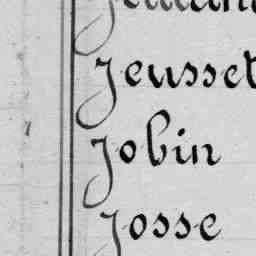 Jeusset
Jobin
Josse